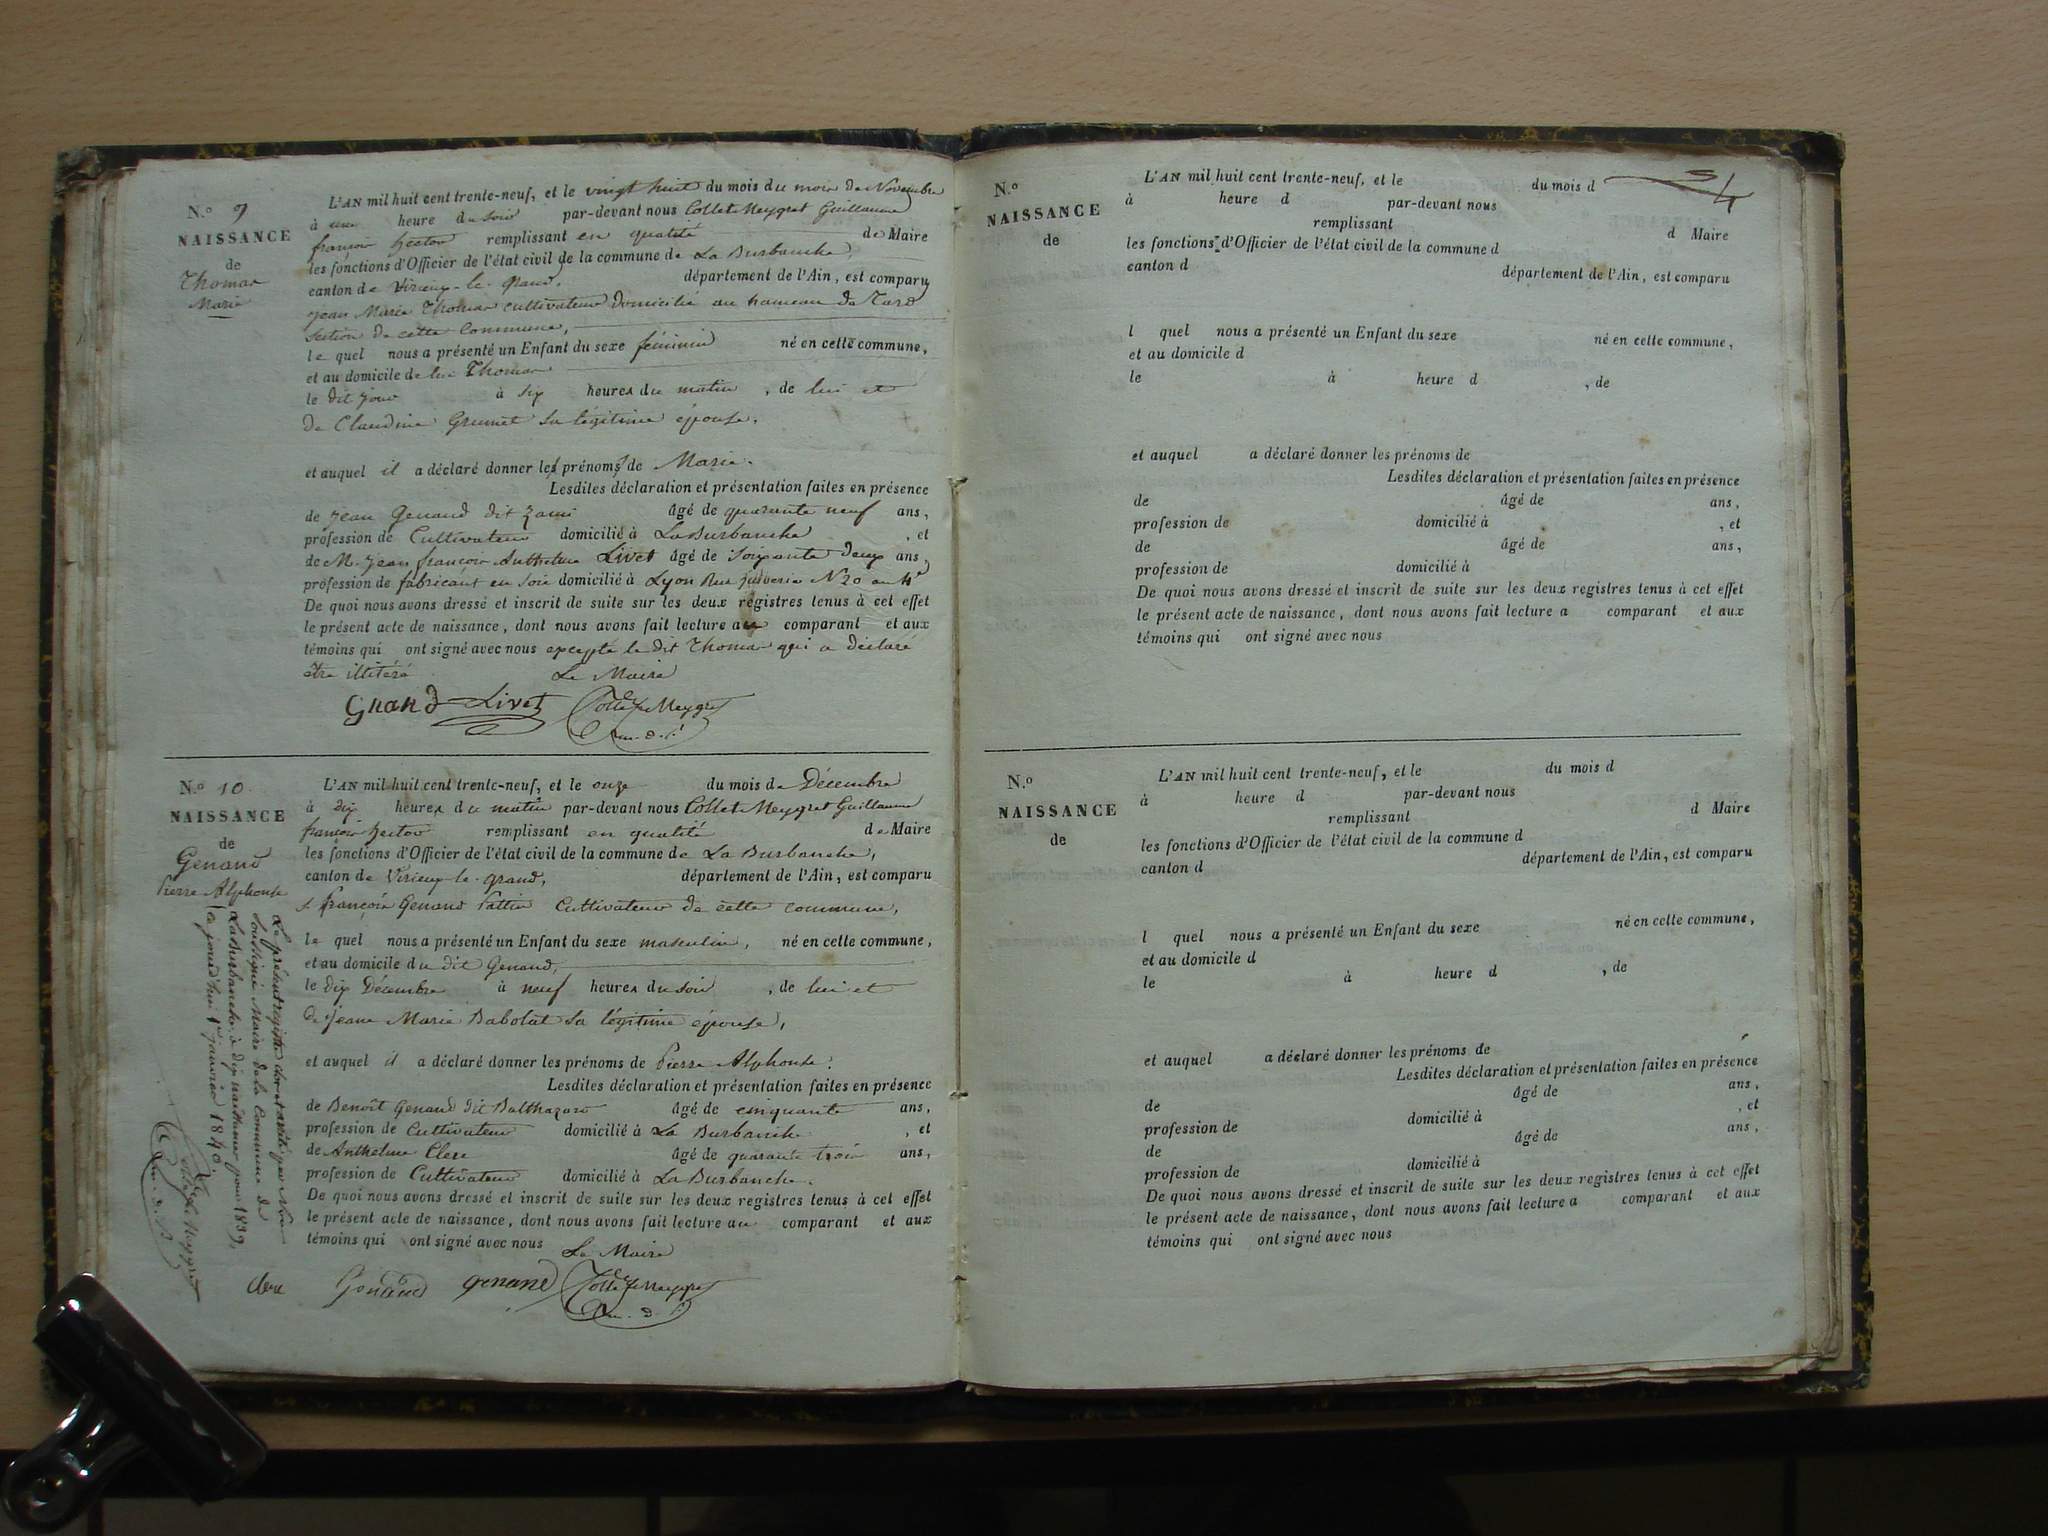 N.o 9
NAISSANCE
de
Thomas
Marie
L'AN mil huit cent trente-neuf, et le vingt huit du mois du mois de Novembre
à une heure du soir par-devant nous Collet Meygret Guillaume
françois hector remplissant en qualité de Maire
les fonctions d'Officier de l'état civil de la commune de La Burbanche,
canton de Virieux-le-grand, département de l'Ain, est comparu
jean Marie Thomas cultivateur domicilié au hameau de Tard
section de cette Commune,
le quel nous a présenté un Enfant du sexe féminin né en cette commune,
et au domicile de lui Thomas
le dit jour à six heures du matin, de lui et
de Claudine Grumet sa légitime épouse,
et auquel il a déclaré donner les prénoms de Marie.
Lesdites déclaration et présentation faites en présence
de jean Genand dit âgé de quarante neuf ans,
profession de Cultivateur domicilié à La Burbanche, et
de M. jean françois Anthelme Livet âgé de soixante deux ans,
profession de fabricant en soie domicilié à Lyon Rue juiverie N 20 au 4e
De quoi nous avons dressé et inscrit de suite sur les deux registres tenus à cet effet
le présent acte de naissance, dont nous avons fait lecture au comparant et aux
témoins qui ont signé avec nous excepté le dit Thomas qui a déclaré
être illitéré
Le Maire
Gnand Livet Collet Meygret
N.o 10
NAISSANCE
de
Genand
Pierre Alphonse
L'AN mil huit cent trente-neuf, et le onze du mois de Décembre
à dix heures du matin par-devant nous Collet Meygret Guillaume
françois hector remplissant en qualité de Maire
les fonctions d'Officier de l'état civil de la commune de La Burbanche,
canton de Virieux-le-grand, département de l'Ain, est comparu
s. françois Genand Pattin Cultivateur de cette commune,
le quel nous a présenté un Enfant du sexe masculin, né en cette commune,
et au domicile du dit Genand,
le dix Décembre à neuf heures du soir, de lui et
de jeane Marie Babolat sa légitime épouse,
et auquel il a déclaré donner les prénoms de Pierre Alphonse.
Lesdites déclaration et présentation faites en présence
de Benoît Genand dit Balthazard âgé de cinquante ans,
profession de Cultivateur domicilié à La Burbanche, et
de Anthelme Clerc âgé de quarante trois ans,
profession de Cultivateur domicilié à La Burbanche.
De quoi nous avons dressé et inscrit de suite sur les deux registres tenus à cet effet
le présent acte de naissance, dont nous avons fait lecture au comparant et aux
témoins qui ont signé avec nous
Le Maire
Clerc Genand genand Collet Meygret
Le présent registre clos et arrêté par Nous
soussigné Maire de la Commune de
La Burbanche, à dix naissances pour 1839,
ce jourd'hui 1er janvier 1840.
Collet Meygret
4
N.o
NAISSANCE
de
L'AN mil huit cent trente-neuf, et le du mois d
à heure d par-devant nous
remplissant d Maire
les fonctions d'Officier de l'état civil de la commune d
canton d département de l'Ain, est comparu
l quel nous a présenté un Enfant du sexe né en cette commune,
et au domicile d
le à heure d , de
et auquel a déclaré donner les prénoms de
Lesdites déclaration et présentation faites en présence
de âgé de ans,
profession de domicilié à , et
de âgé de ans,
profession de domicilié à
De quoi nous avons dressé et inscrit de suite sur les deux registres tenus à cet effet
le présent acte de naissance, dont nous avons fait lecture a comparant et aux
témoins qui ont signé avec nous
N.o
NAISSANCE
de
L'AN mil huit cent trente-neuf, et le du mois d
à heure d par-devant nous
remplissant d Maire
les fonctions d'Officier de l'état civil de la commune d
canton d département de l'Ain, est comparu
l quel nous a présenté un Enfant du sexe né en cette commune,
et au domicile d
le à heure d , de
et auquel a déclaré donner les prénoms de
Lesdites déclaration et présentation faites en présence
de âgé de ans,
profession de domicilié à , et
de âgé de ans,
profession de domicilié à
De quoi nous avons dressé et inscrit de suite sur les deux registres tenus à cet effet
le présent acte de naissance, dont nous avons fait lecture a comparant et aux
témoins qui ont signé avec nous